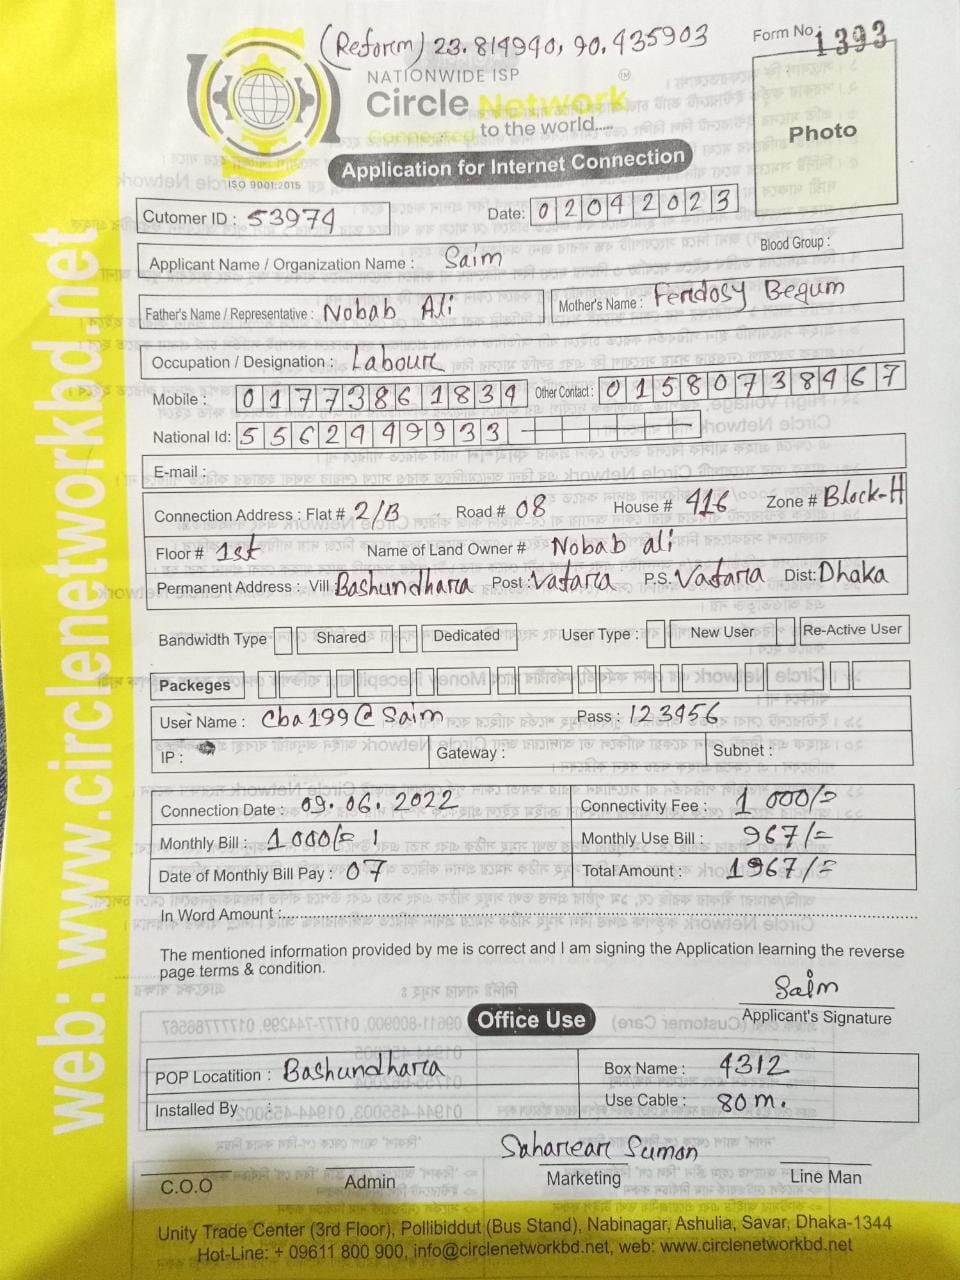 (Reform) 23.814940, 90.435903
Form No. 1393
NATIONWIDE ISP
Circle Network TM
Connected to the world.....
ISO 9001:2015
Application for Internet Connection
Photo
Cutomer ID : 53974 Date: 02042023
Applicant Name / Organization Name : Saim Blood Group :
Father's Name / Representative : Nobab Ali Mother's Name : Ferdosy Begum
Occupation / Designation : Labour
Mobile : 01773861834 Other Contact : 01580738467
National Id: 5562949933
E-mail :
Connection Address : Flat # 2/B Road # 08 House # 416 Zone # Block-H
Floor # 1st Name of Land Owner # Nobab ali
Permanent Address : Vill Bashundhara Post : Vatara P.S. Vatara Dist: Dhaka
Bandwidth Type Shared Dedicated User Type : New User Re-Active User
Packeges
User Name : Cba199@Saim Pass : 123456
IP : Gateway : Subnet :
Connection Date : 09.06.2022 Connectivity Fee : 1000/=
Monthly Bill : 1000/= Monthly Use Bill : 967/=
Date of Monthly Bill Pay : 07 Total Amount : 1967/=
In Word Amount :
The mentioned information provided by me is correct and I am signing the Application learning the reverse
page terms & condition.
Saim
Applicant's Signature
Office Use
POP Locatition : Bashundhara Box Name : 4312
Installed By : Use Cable : 80 m.
Saharear Sumon
C.O.O Admin Marketing Line Man
Unity Trade Center (3rd Floor), Pollibiddut (Bus Stand), Nabinagar, Ashulia, Savar, Dhaka-1344
Hot-Line: + 09611 800 900, info@circlenetworkbd.net, web: www.circlenetworkbd.net
web: www.circlenetworkbd.net